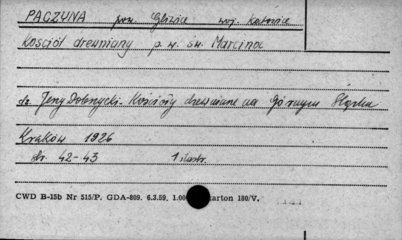 PACZYNA pow. Gliwice woj. Katowice
Kościół drewniany p.w. św. Marcina
dr. Jerzy Dobrzycki - Kościoły drewniane na Górnym Śląsku
Kraków 1926
str. 42-43 1 ilustr.
CWD B-15b Nr 515/P. GDA-809. 6.3.59. 1.00 karton 180/V.